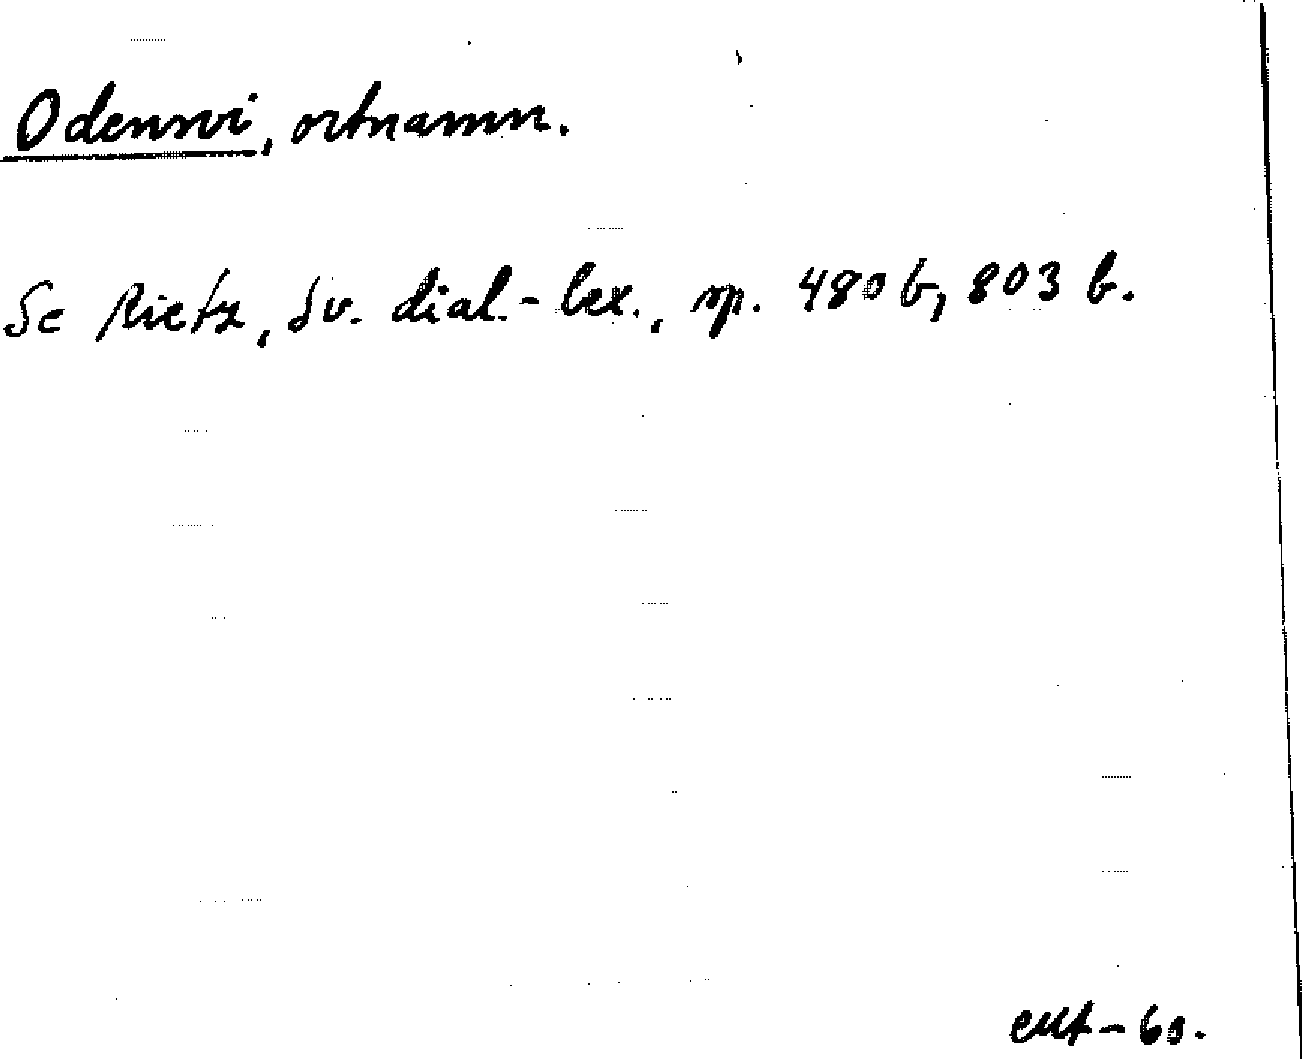 Odensvi, ortnamn.
Se Rietz, Sv. dial.-lex., sp. 480 b, 803 b.